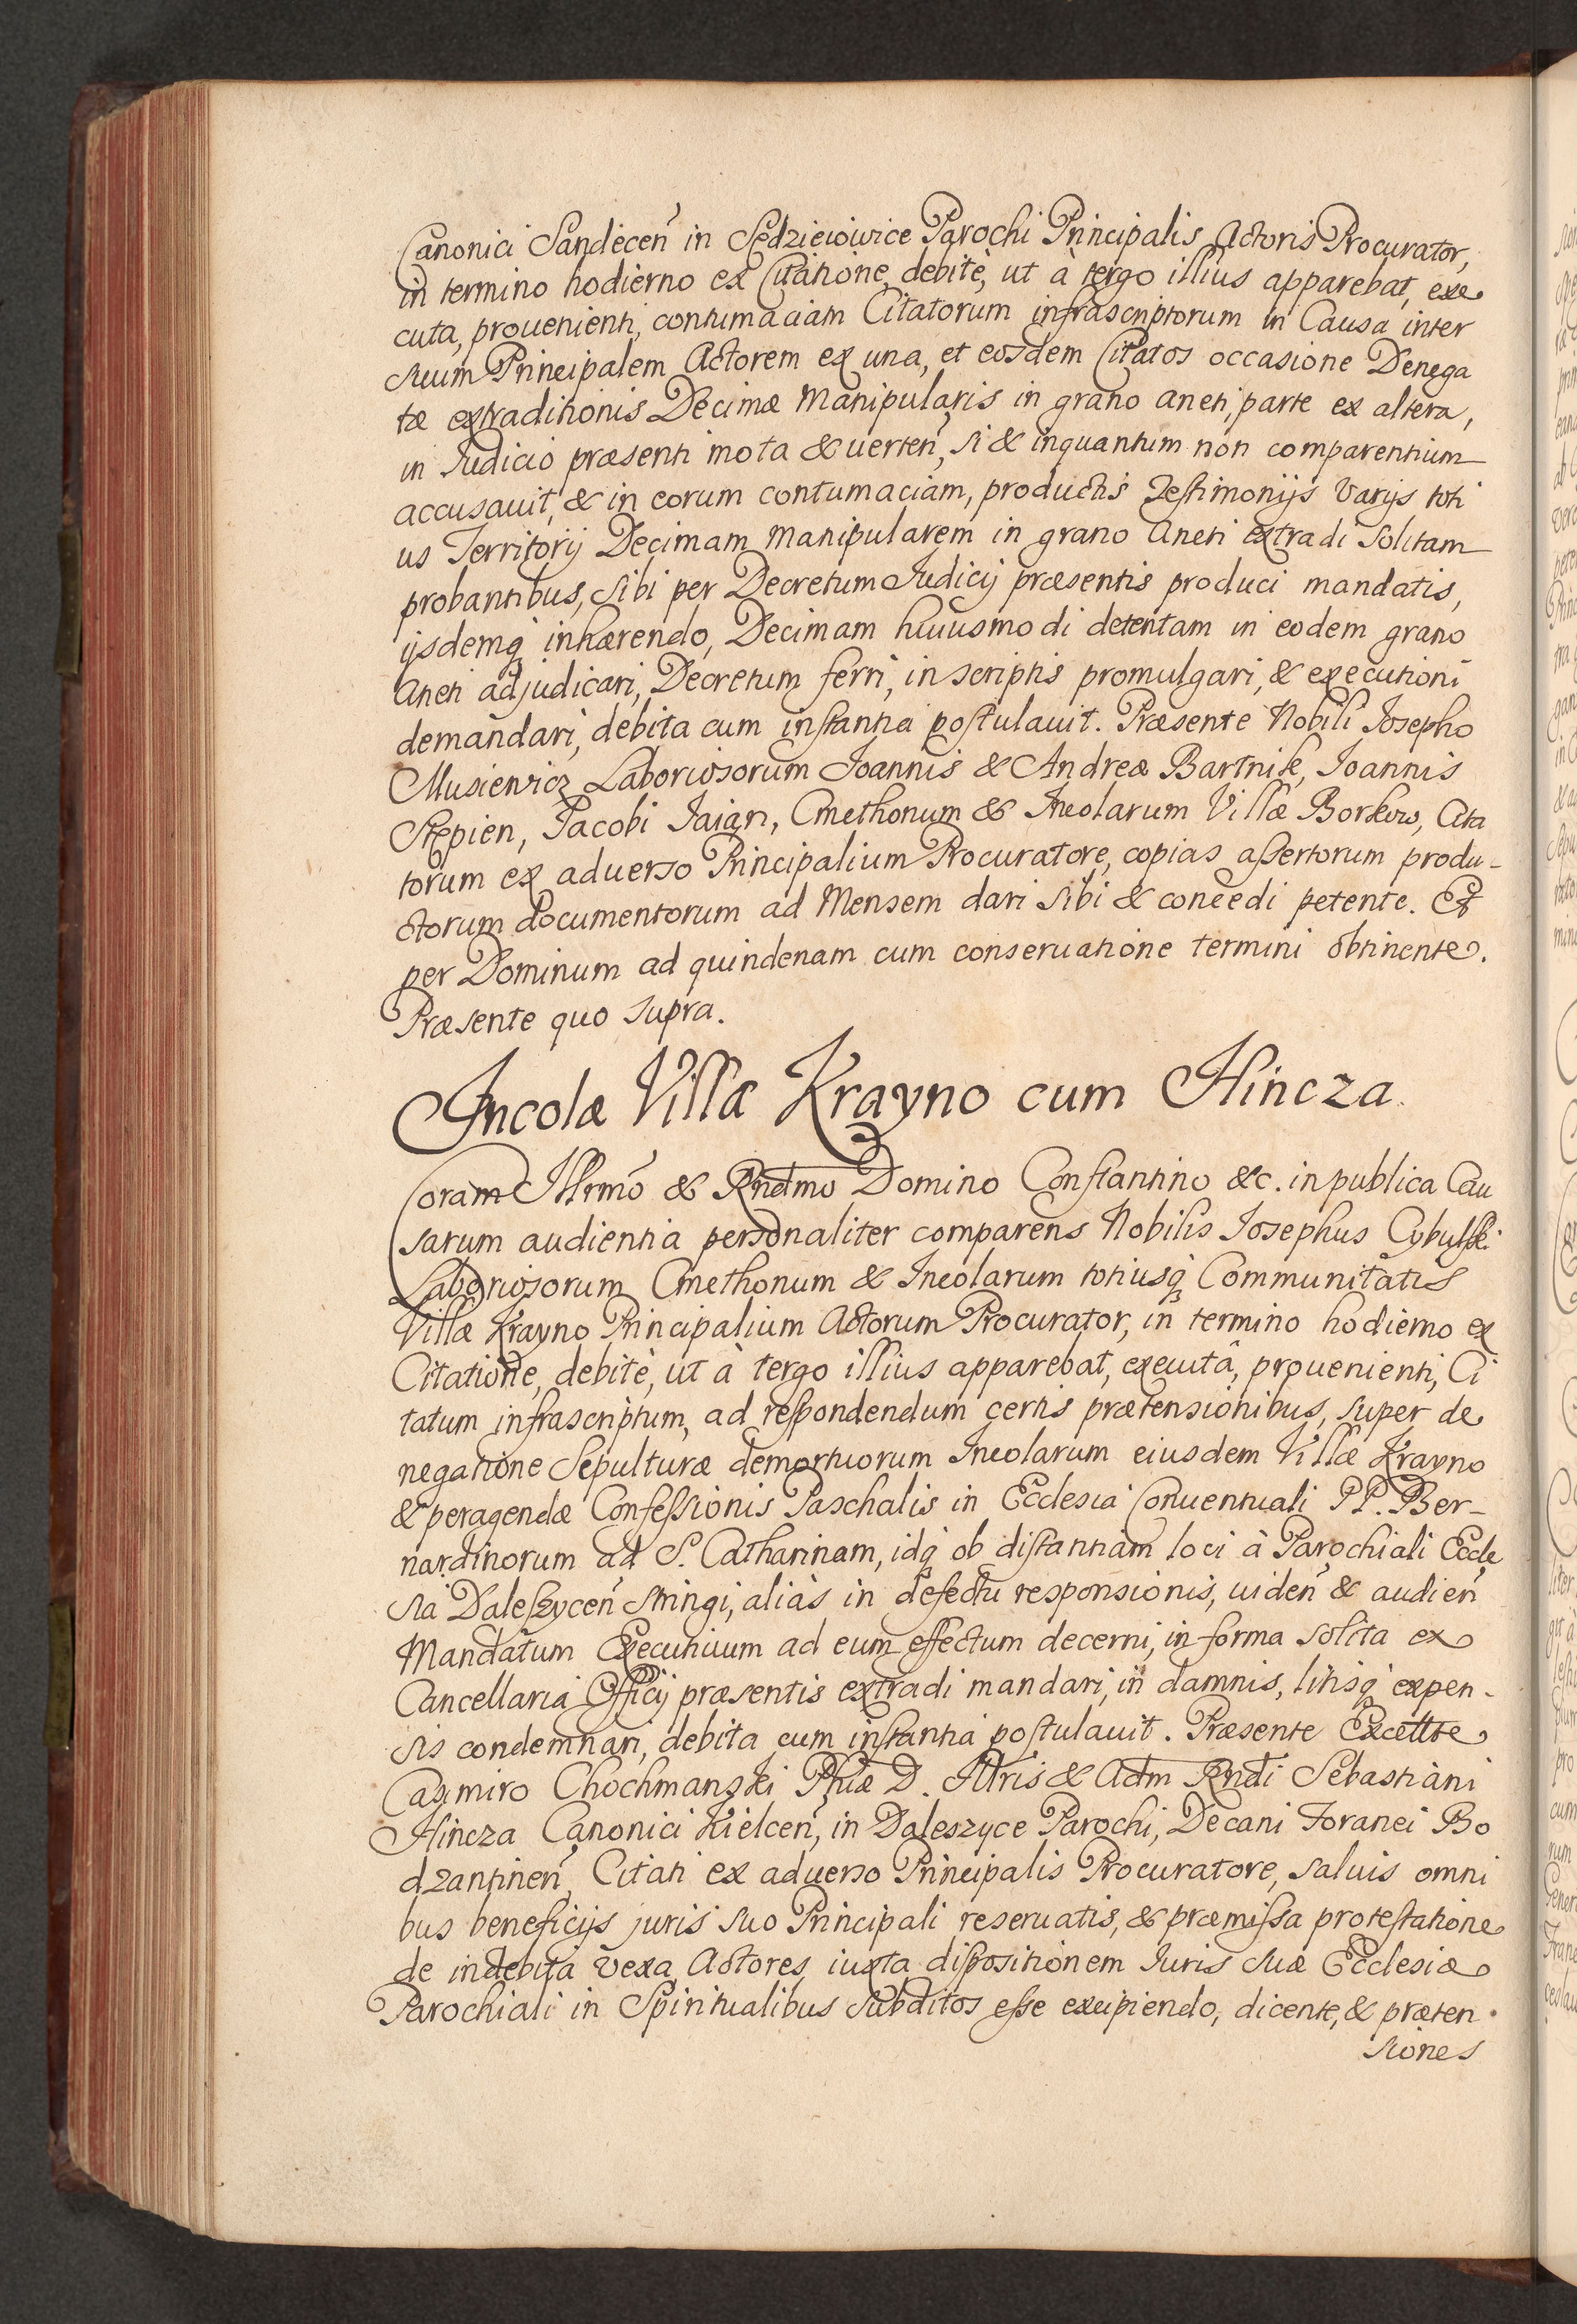 Canonici Sandecen̄ in Sędzieiowice Parochi Principalis Actoris Procurator,
in termino hodierno ex Citatione, debitè, ut à tergo illius apparebat, exe
cuta, prouenienti, contumaciam Citatorum infrascriptorum in Causa inter
suum Principalem Actorem ex una, et eosdem Citatos occasione Denega
tæ extraditionis Decimæ Manipularis in grano aneti, parte ex altera,
in Iudicio præsenti mota & uerten̄, si & inquantum non comparentium
accusauit, & in eorum contumaciam, productis Testimonijs Varijs toti
us Territorij Decimam Manipularem in grano Aneti extradi Solitam
probantibus, sibi per Decretum Iudicij præsentis produci mandatis,
ijsdemq̨ inhærendo, Decimam huiusmodi detentam in eodem grano
Aneti adjudicari, Decretum ferri, in scriptis promulgari, & executioni
demandari, debita cum instantia postulauit. Præsente Nobili Iosepho
Musiewicz Laboriosorum Joannis & Andreæ Bartnik, Joannis
Stępien, Jacobi Jaian, Cmethonum & Incolarum Villæ Borkow, Cita
torum ex aduerso Principalium Procuratore, copias assertorum produ-
ctorum documentorum ad Mensem dari sibi & concedi petente. Et
per Dominum ad quindenam cum conseruatione termini obtinente.
Præsente quo supra.
Incolæ Villæ Krayno cum Hincza.
Coram Illrmō & Rndmo Domino Constantino &c. in publica Cau
sarum audientia personaliter comparens Nobilis Iosephus Cybulski
Laboriosorum Cmethonum & Incolarum totiusq̨ Communitatis
Villæ Krayno Principalium Actorum Procurator, in termino hodierno ex
Citatione, debitè, ut à tergo illius apparebat, executâ, prouenienti, Ci
tatum infrascriptum, ad respondendum certis prætensionibus, super de
negatione Sepulturæ demortuorum Incolarum eiusdem Villæ Krayno
& peragendæ Confessionis Paschalis in Ecclesia Conuentuali PP. Ber-
nardinorum ad S. Catharinam, idq̨ ob distantiam loci à Parochiali Eccle
sia Daleszycen̄ stringi, aliàs in defectu responsionis, uiden̄ & audien̄
Mandatum Executiuum ad eum effectum decerni, in forma solita ex
Cancellaria Officij præsentis extradi mandari, in damnis, litisq̨ expen-
sis condemnari, debita cum instantia postulauit. Præsente Excellte
Casimiro Chochmanski Phiæ D. Illris & Adm Rndi Sebastiani
Hincza Canonici Kielcen̄, in Daleszyce Parochi, Decani Foranei Bo
dzantinen̄, Citati ex aduerso Principalis Procuratore, saluis omni
bus beneficijs juris suo Principali reseruatis, & præmissa protestatione
de indebita vexa Actores iuxta dispositionem Iuris suæ Ecclesiæ
Parochiali in Spiritualibus subditos esse excipiendo, dicente, & præten-
siones